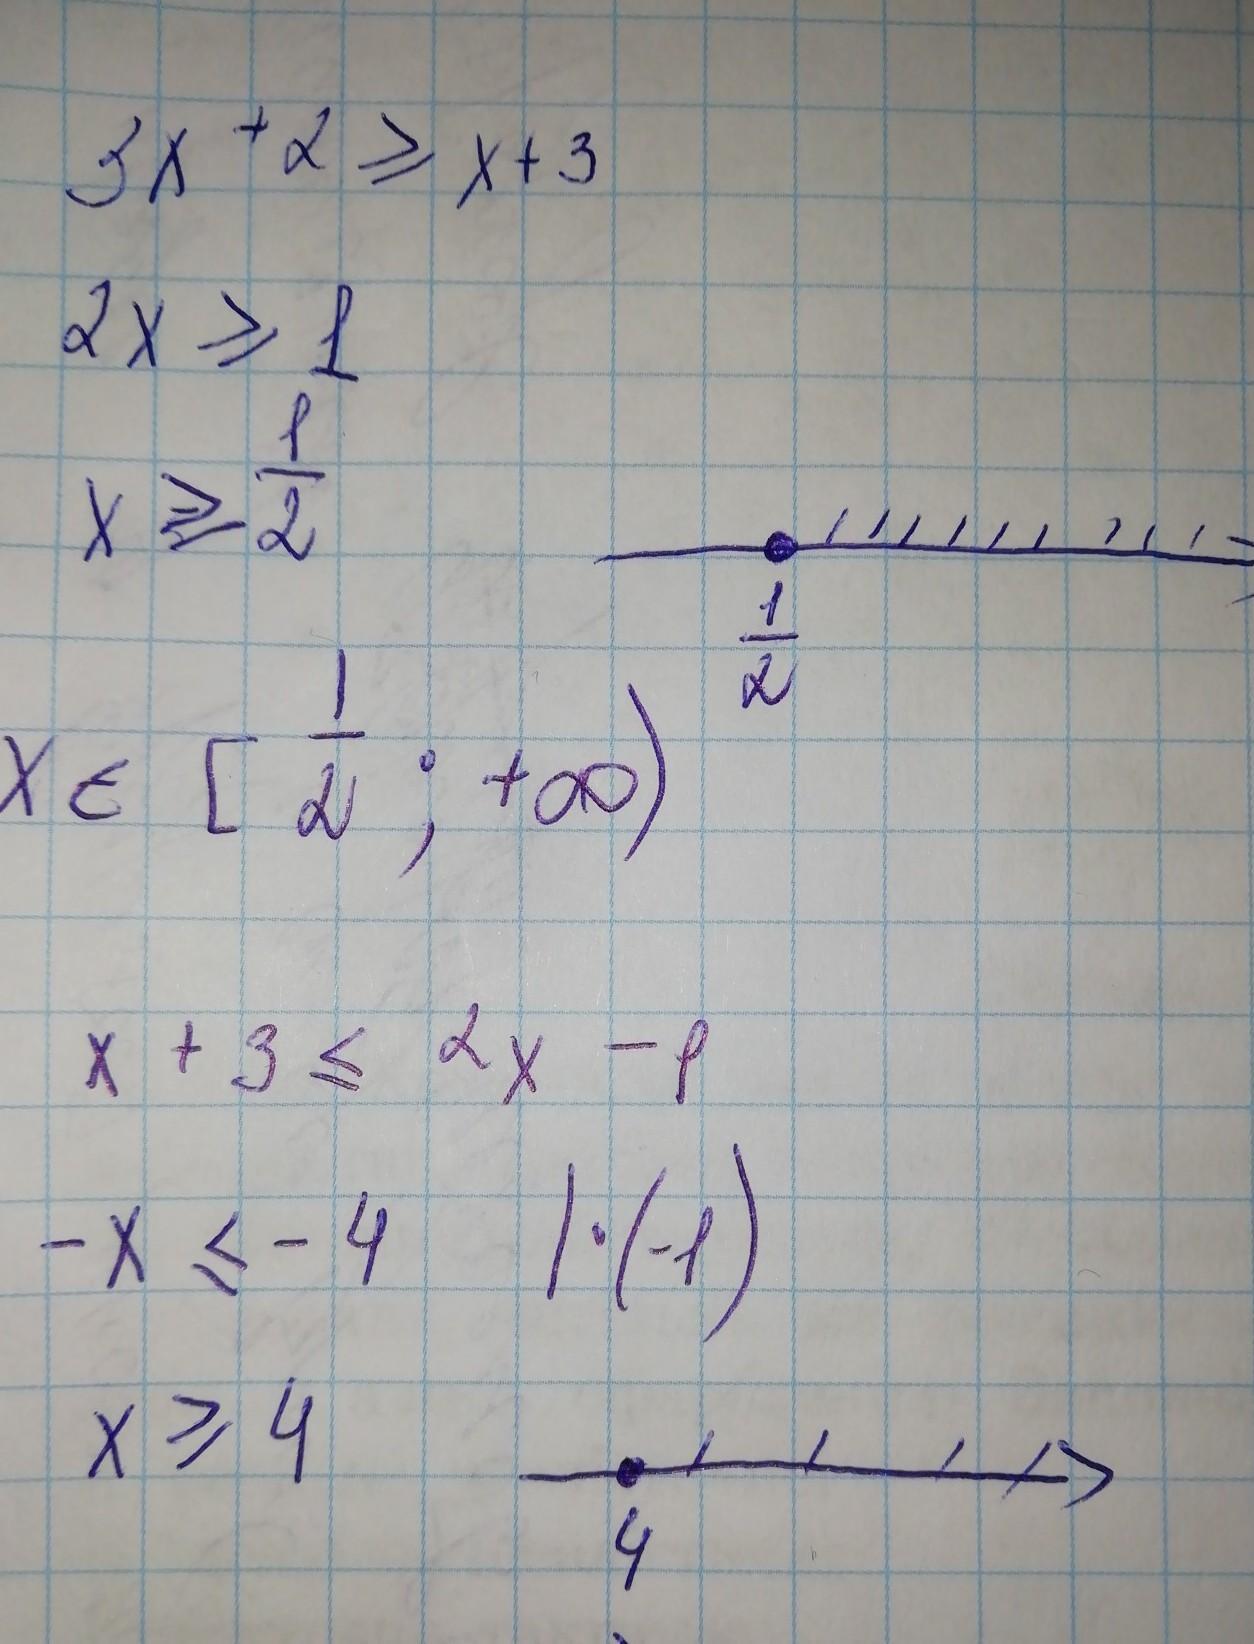 3x + 2 ≥ x + 3
2x ≥ 1
x ≥ 1/2
1/2
x ∈ [1/2; +∞)
x + 3 ≤ 2x - 1
-x ≤ -4 | · (-1)
x ≥ 4
4